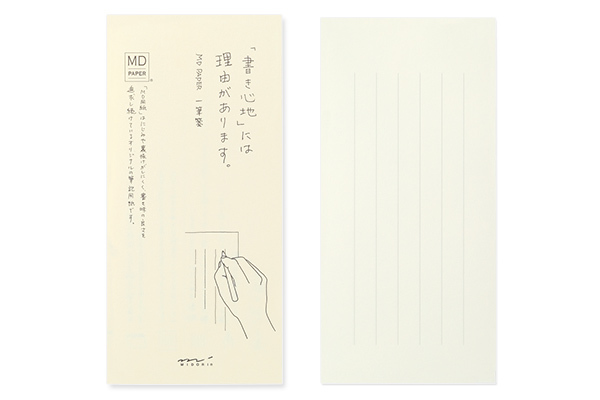 「書き心地」には
理由があります。
MD PAPER 一筆箋
MD
PAPER
「MD用紙」はにじみや裏抜けがしにくく、書き味の良さを
追求し続けているオリジナルの筆記用紙です。
MIDORI